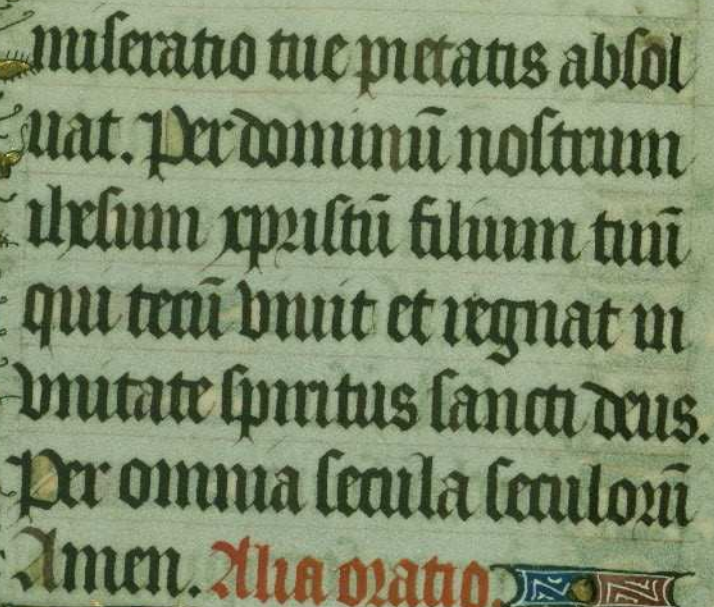 miseratio tue pietatis absol
uat. Per dominū nostrum
ihesum xpristū filium tuū
qui tecū viuit et regnat in
vnitate spiritus sancti deus.
Per omnia secula seculorū
Amen. Alia oratio.